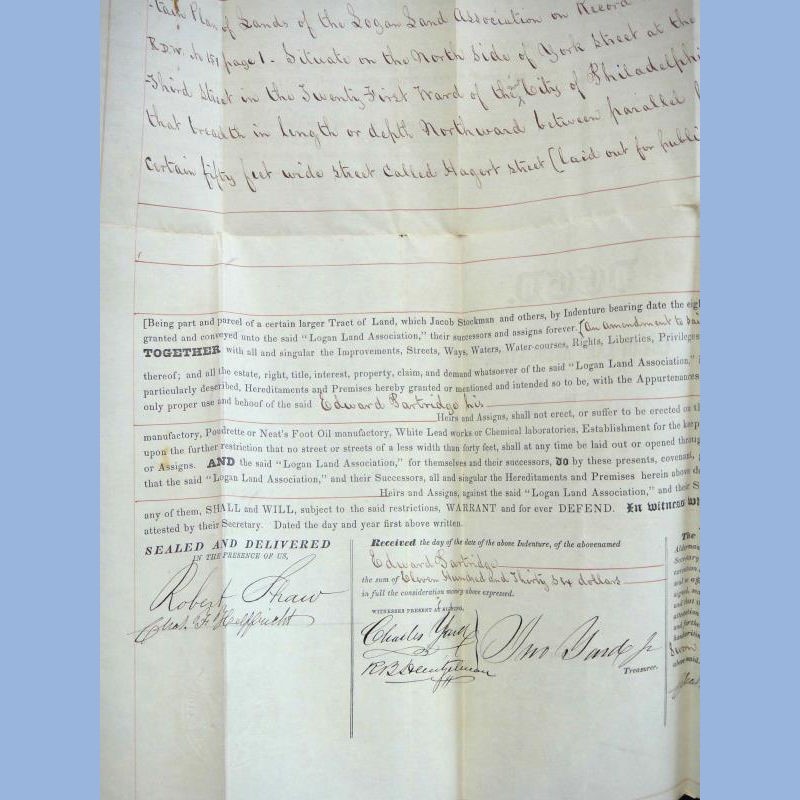 Plan of Lands of the Logan Land Association on Record
R.D.W. No 151 page 1. Situate on the North Side of York Street at the
Third Street in the Twenty First Ward of the City of Philadelphi
that breadth in length or depth Northward between parallel
certain fifty feet wide street called Hagert street [laid out for publi
[Being part and parcel of a certain larger Tract of Land, which Jacob Stockman and others, by Indenture bearing date the eig
granted and conveyed unto the said "Logan Land Association," their successors and assigns forever. [An amendment to sai
TOGETHER with all and singular the Improvements, Streets, Ways, Waters, Water-courses, Rights, Liberties, Privileges
thereof; and all the estate, right, title, interest, property, claim, and demand whatsoever of the said "Logan Land Association,"
particularly described, Hereditaments and Premises hereby granted or mentioned and intended so to be, with the Appurtenances
only proper use and behoof of the said Edward Partridge his
Heirs and Assigns, shall not erect, or suffer to be erected on th
manufactory, Poudrette or Neat's Foot Oil manufactory, White Lead works or Chemical laboratories, Establishment for the keep
upon the further restriction that no street or streets of a less width than forty feet, shall at any time be laid out or opened throug
or Assigns. AND the said "Logan Land Association," for themselves and their successors, DO by these presents, covenant,
that the said "Logan Land Association," and their Successors, all and singular the Hereditaments and Premises herein above d
Heirs and Assigns, against the said "Logan Land Association," and their S
any of them, SHALL and WILL, subject to the said restrictions, WARRANT and for ever DEFEND. In witness w
attested by their Secretary. Dated the day and year first above written.
SEALED AND DELIVERED
IN THE PRESENCE OF US,
Robert Shaw
Chas. F. Helffricht
Received the day of the date of the above Indenture, of the abovenamed
Edward Partridge
the sum of Eleven Hundred and Thirty Six dollars
in full the consideration money above expressed.
WITNESSES PRESENT AT SIGNING,
Charles Yard
R B
Jno Yard Jr
Treasurer.
The
Alderman
Secretary